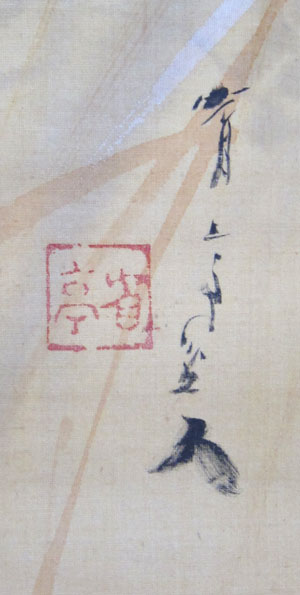 省亭人
省亭